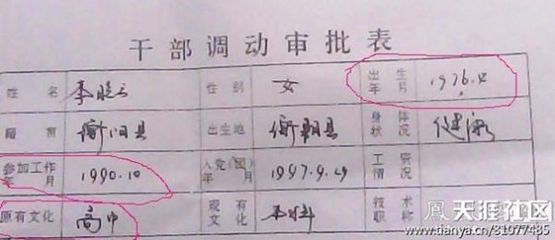 干部调动审批表
姓名 李 性别 女 出生年月 1976.4
籍贯 衡阳县 出生地 衡阳县 身体状况 健康
参加工作年月 1990.10 入党(团)年月 1997.9.29 工资情况
原有文化 高中 现有文化 本科 技术职称
天涯社区
www.tianya.cn/81077485